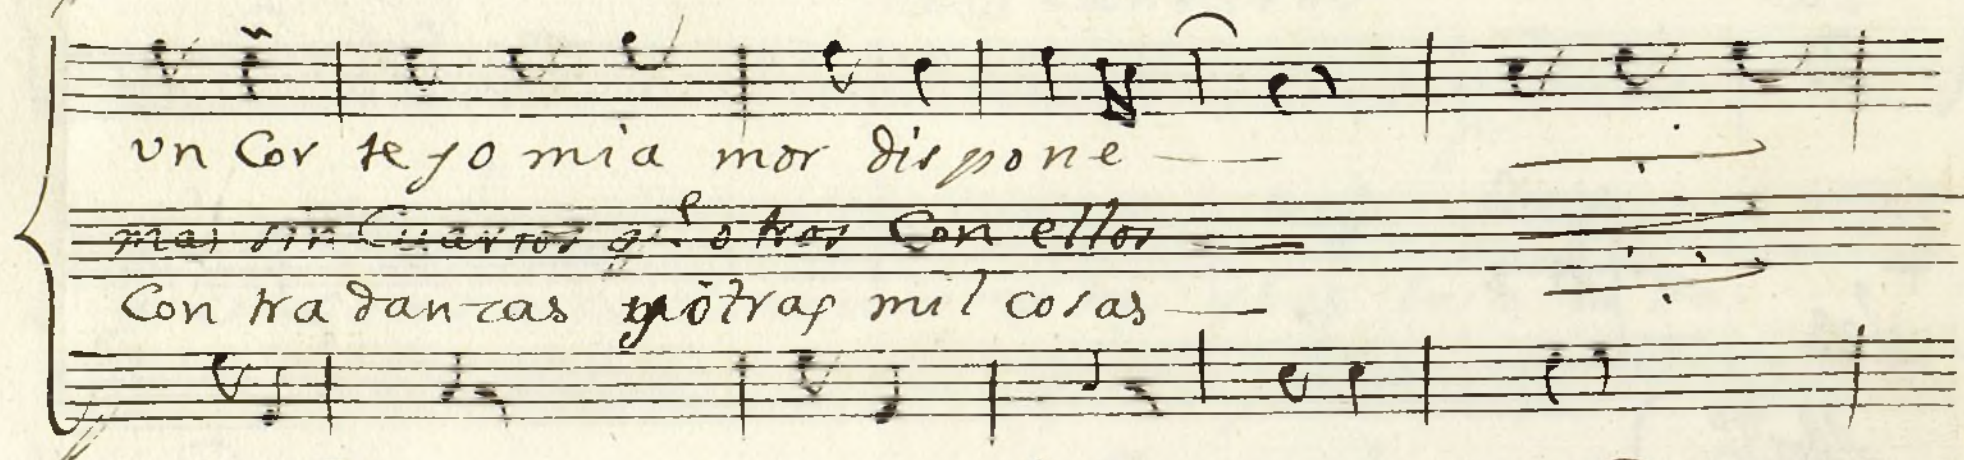 un Cor te jo mi a mor dispone
mas sin Cuartos q.e otros Con ellos
Con tra danzas y ótras mil cosas